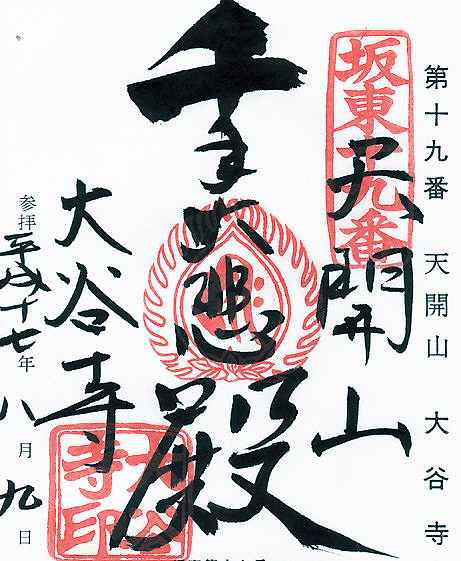 第十九番 天開山 大谷寺
坂東十九番
天開山
千手大悲殿
大谷寺
大谷寺印
参拝 平成十七年八月九日